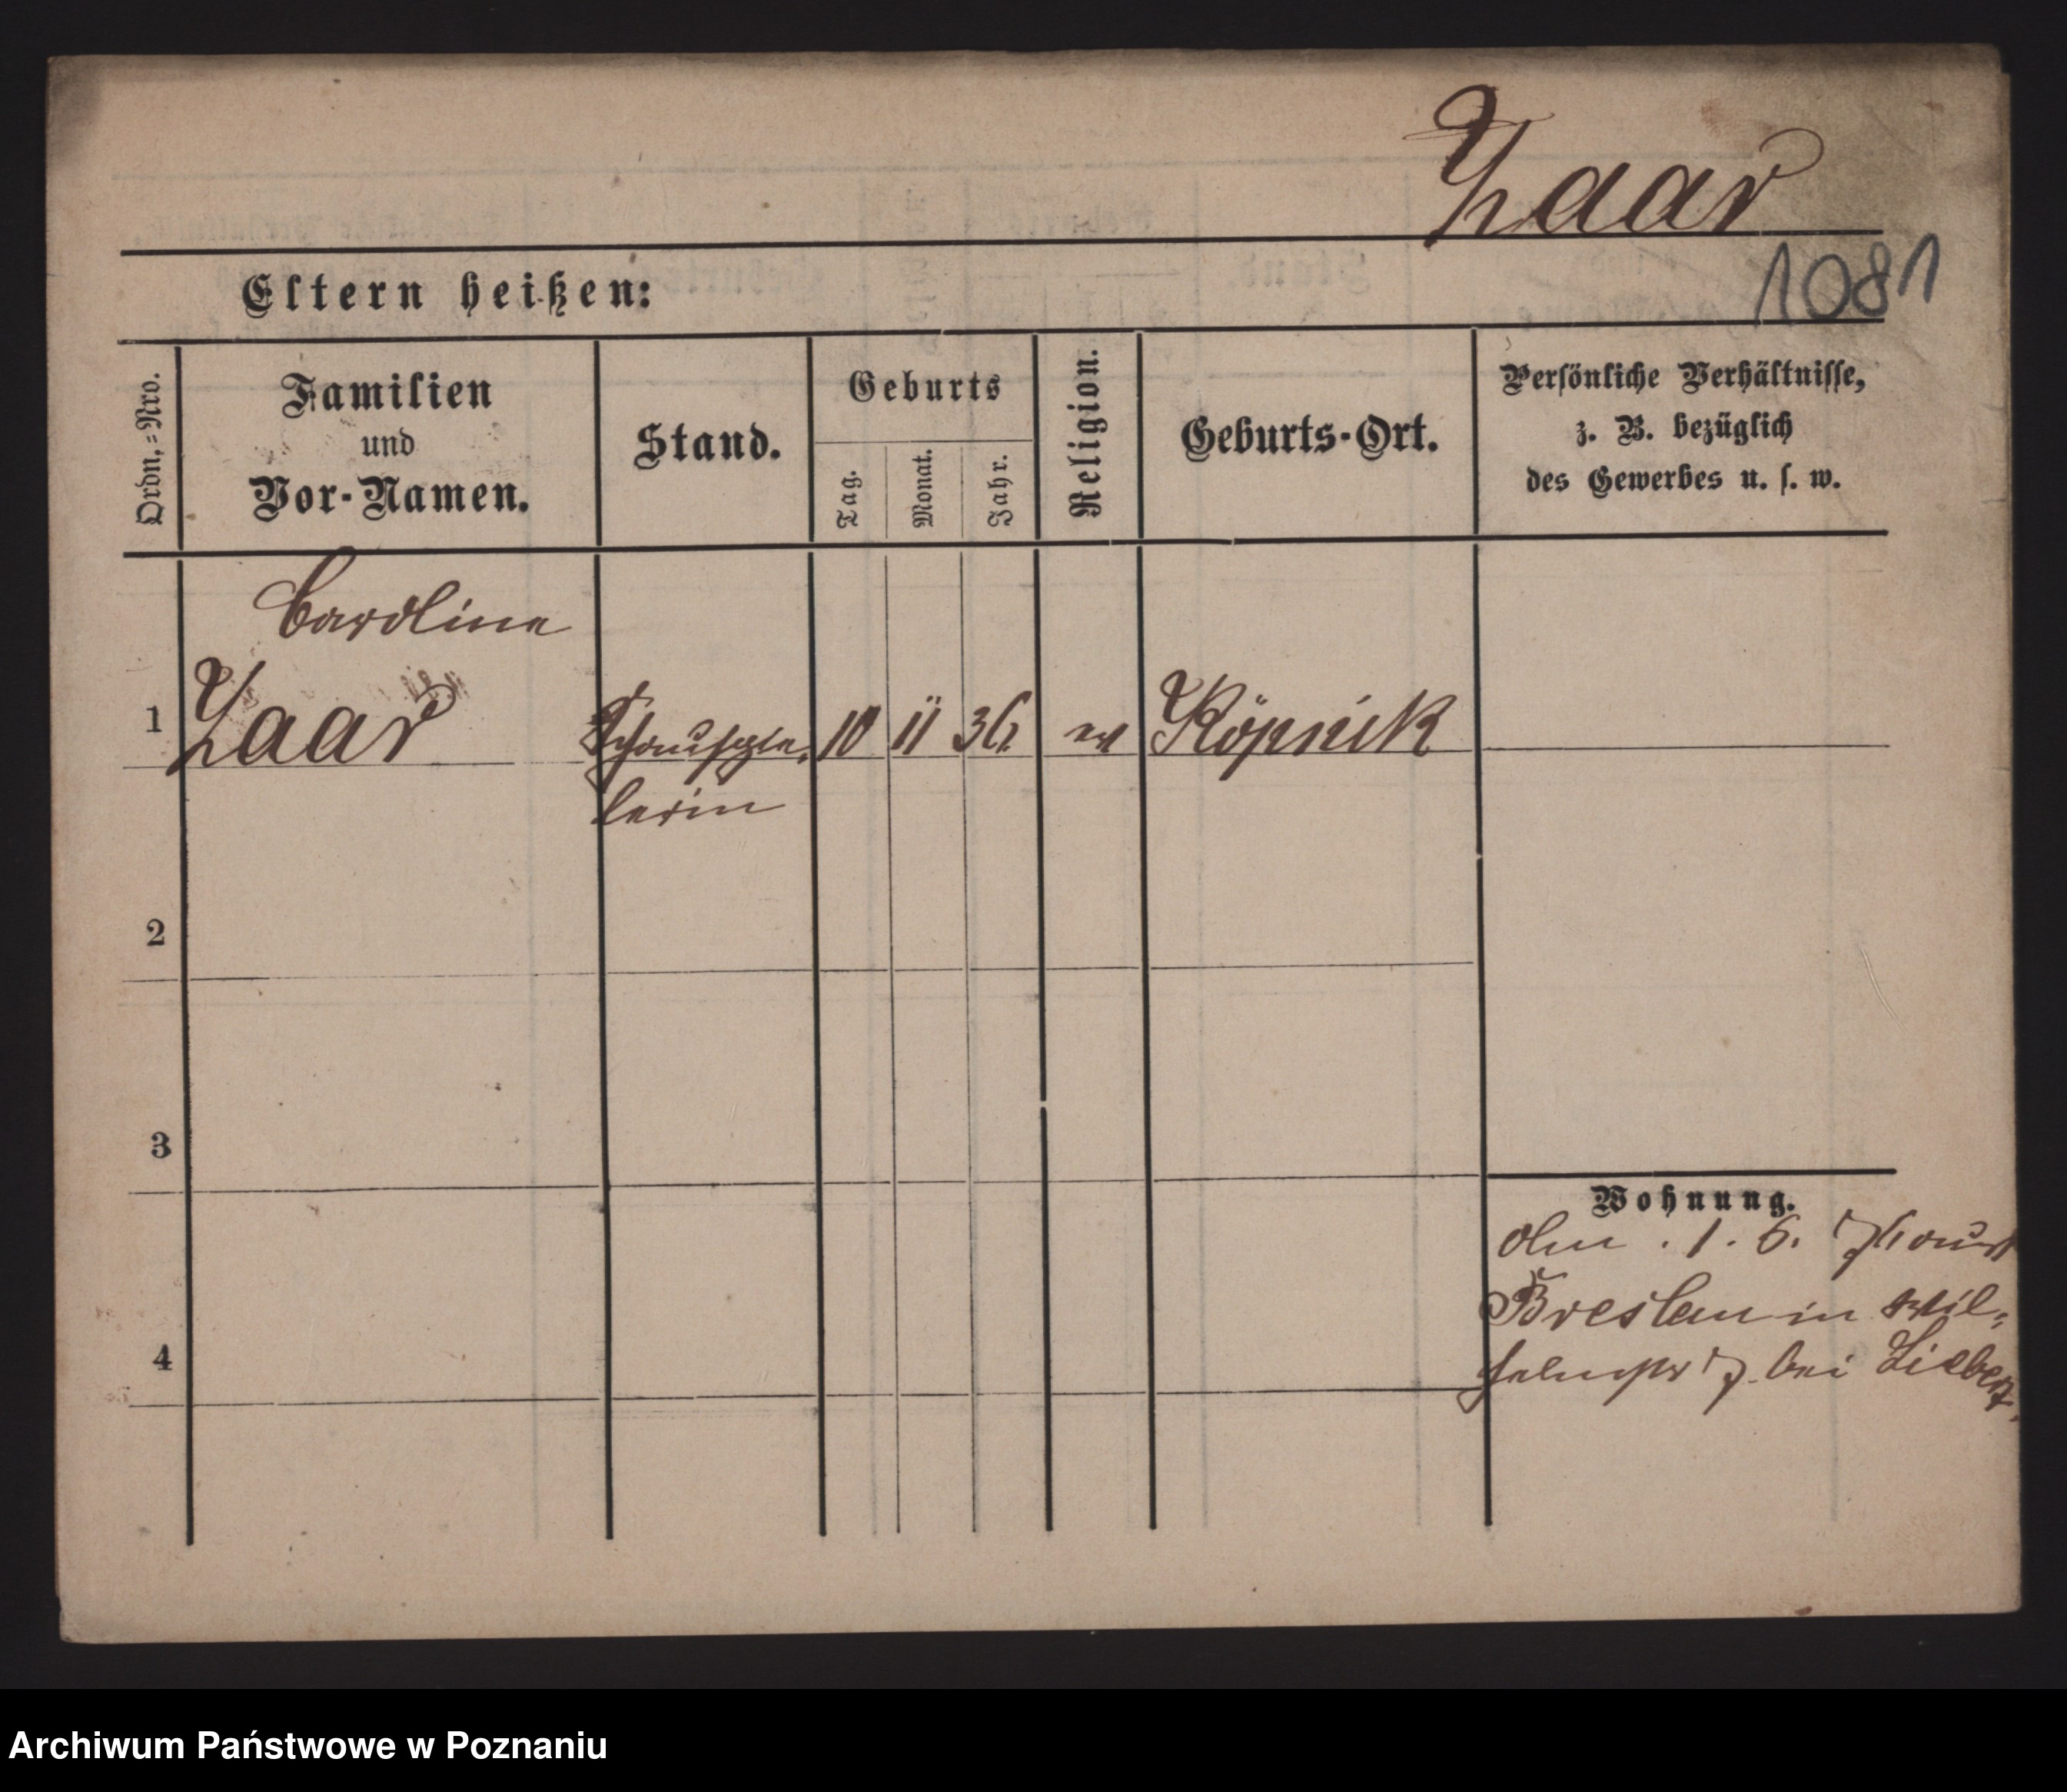 Haar
1081
Eltern heißen:
Ordn.=Nro.
Familien
und
Vor-Namen.
Stand.
Geburts
Tag.
Monat.
Jahr.
Religion.
Geburts-Ort.
Persönliche Verhältnisse,
z. B. bezüglich
des Gewerbes u. s. w.
Caroline
1 Haar Schauspie- 10 11 36 ev Köpnick
lerin
2
3
4
Wohnung.
1. 6.
Breslau in Wil-
helmstr 7 bei
Archiwum Państwowe w Poznaniu